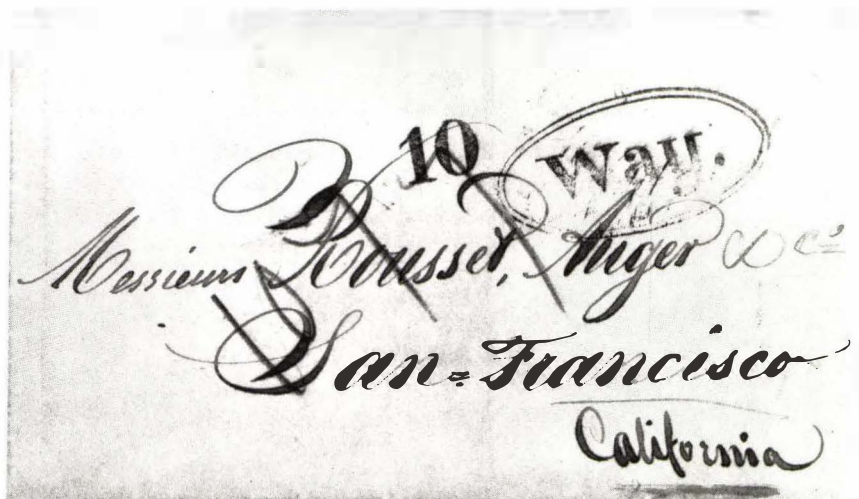 10
Way.
Messieurs Rousset, Auger & Cº
San=Francisco
California